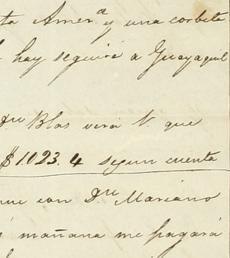 ta Amerª y una corbeta
hay seguirá a Guayaquil
Dn Blas verá V. que
$1023.4 segun cuenta
con Dn Mariano
mañana me pagará